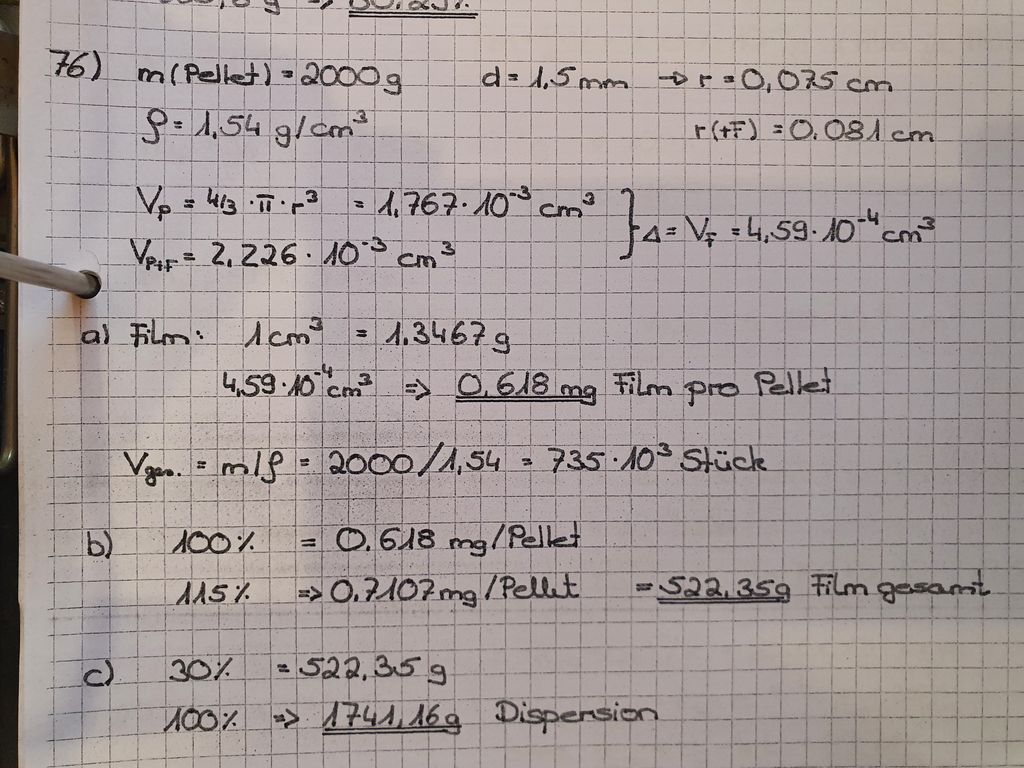 76) m(Pellet) = 2000g d = 1,5mm → r = 0,075 cm
ρ = 1,54 g/cm³ r(+F) = 0.081 cm
V_P = 4/3 · π · r³ = 1,767 · 10⁻³ cm³
V_P+F = 2,226 · 10⁻³ cm³ } Δ = V_F = 4,59 · 10⁻⁴ cm³
a) Film: 1cm³ = 1.3467g
4,59·10⁻⁴cm³ => 0,618 mg Film pro Pellet
V_ges. = m/ρ = 2000/1,54 = 735·10³ Stück
b) 100% = 0.618 mg/Pellet
115% => 0,7107mg/Pellet = 522,35g Film gesamt
c) 30% = 522,35 g
100% => 1741,16g Dispension